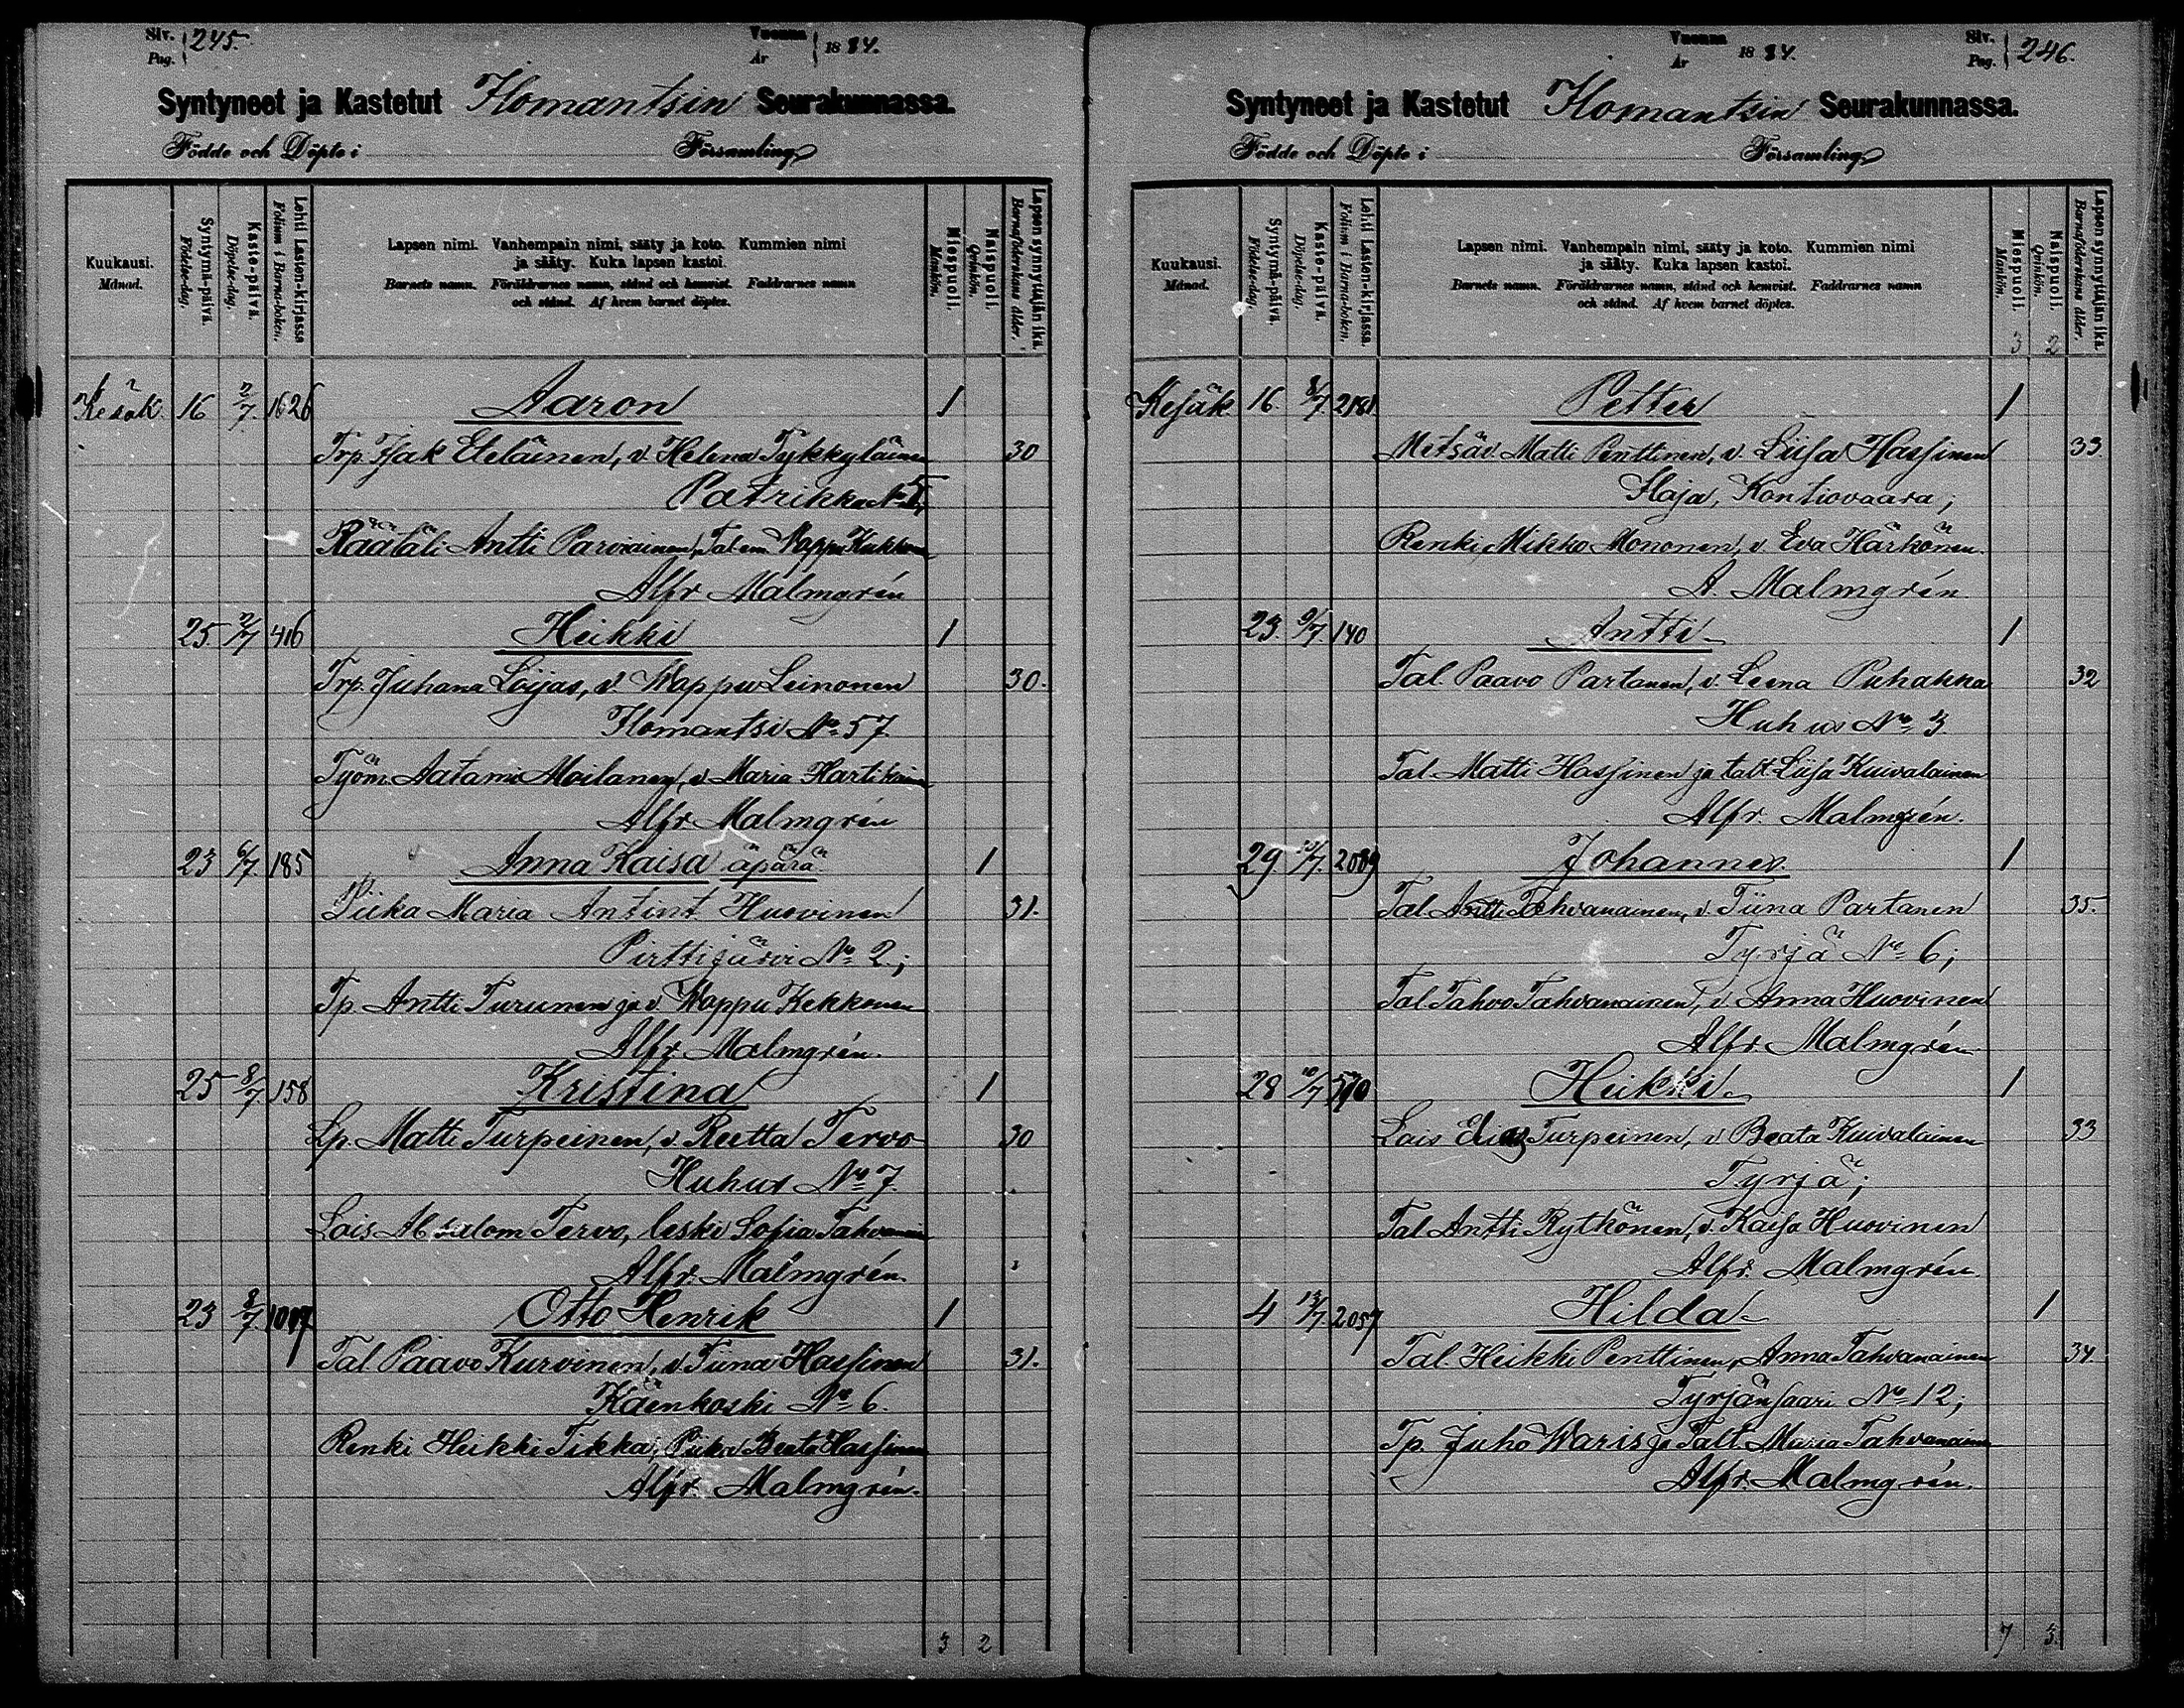 Siv. Pag. 245.
Vuonna År 1884.
Syntyneet ja Kastetut Ilomantsin Seurakunnassa.
Födde och Döpte i Församling
Kuukausi. Månad.
Syntymä-päivä. Födelse-dag.
Kaste-päivä. Döpelse-dag.
Lehti Lasten-kirjassa Folium i Barna-boken.
Lapsen nimi. Vanhempain nimi, sääty ja koto. Kummien nimi
ja sääty. Kuka lapsen kastoi.
Barnets namn. Föräldrarnes namn, stånd och hemvist. Faddrarnes namn
och stånd. Af hvem barnet döptes.
Miespuoli. Mankön.
Naispuoli. Qvinkön.
Lapsen synnyttäjän ikä. Barnaföderskans ålder.
Kesäk 16 2/7. 1626 Aaron 1
Trp. Isak Eteläinen, v. Helena Tykkyläinen 30
Patrikka
Räätäli Antti Parviainen, Tal em Wappu Kukkonen
Alfr Malmgrén
25 2/7 416 Heikki 1
Trp. Juhana Löijas, v. Wappu Leinonen 30.
Ilomantsi No 57
Työm. Aatami Moilanen, v. Maria Hartikainen
Alfr Malmgrén
23 6/7. 185 Anna Kaisa äpärä 1
Piika Maria Antint Huovinen 31.
Pirttijärvi No 2.;
Tp. Antti Turunen ja v. Wappu Kekkonen
Alfr. Malmgrén.
25 8/7 158 Kristina 1
Lp. Matti Turpeinen, v. Reetta Tervo 30
Huhus No 7.
Lois Absalom Tervo, leski Sofia Tahvanain
Alfr. Malmgrén.
23 8/7. Otto Henrik 1
Tal. Paavo Kurvinen, v. Tiina Hassinen 31.
Käenkoski No 6.
Renki Heikki Tikka, Piika Beata Hassinen
Alfr. Malmgrén.
3 2
Vuonna År 1884.
Siv. Pag. 246.
Syntyneet ja Kastetut Ilomantsin Seurakunnassa.
Födde och Döpte i Församling
Kuukausi. Månad.
Syntymä-päivä. Födelse-dag.
Kaste-päivä. Döpelse-dag.
Lehti Lasten-kirjassa Folium i Barna-boken.
Lapsen nimi. Vanhempain nimi, sääty ja koto. Kummien nimi
ja sääty. Kuka lapsen kastoi.
Barnets namn. Föräldrarnes namn, stånd och hemvist. Faddrarnes namn
och stånd. Af hvem barnet döptes.
Miespuoli. Mankön. 3
Naispuoli. Qvinkön. 2
Lapsen synnyttäjän ikä. Barnaföderskans ålder.
Kesäk 16. 8/7. 2181 Petter 1
Metsäv. Matti Penttinen, v. Liisa Hassinen 33.
Ilaja, Kontiovaara;
Renki, Mikko Mononen, v. Eva Härkönen.
A. Malmgrén
23. 9/7. 140 Antti 1
Tal. Paavo Partanen, v. Leena Puhakka 32
Huhus No 3.
Tal. Matti Hassinen ja talt Liisa Kuivalainen
Alfr. Malmgrén.
29. 10/7. 2089 Johannes. 1
Tal. Antti Tahvanainen, v. Tiina Partanen 35.
Tyrjä No 6;
Tal Tahvo Tahvanainen, v. Anna Huovinen
Alfr. Malmgrén
28 10/7 Heikki. 1
Lois Elias Turpeinen, v Beata Kuivalainen 33
Tyrjä;
Tal Antti Rytkönen, v. Kaisa Huovinen
Alfr. Malmgrén.
4 13/7. 2057 Hilda 1
Tal. Heikki Penttinen, Anna Tahvanainen 34.
Tyrjänsaari No 12;
Tp. Juho Waris ja Talt. Maria Tahvanainen
Alfr. Malmgrén.
7 3.